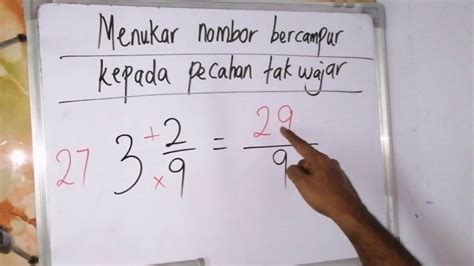 Menukar nombor bercampur
kepada pecahan tak wajar
27 3 + 2/9 × = 29/9